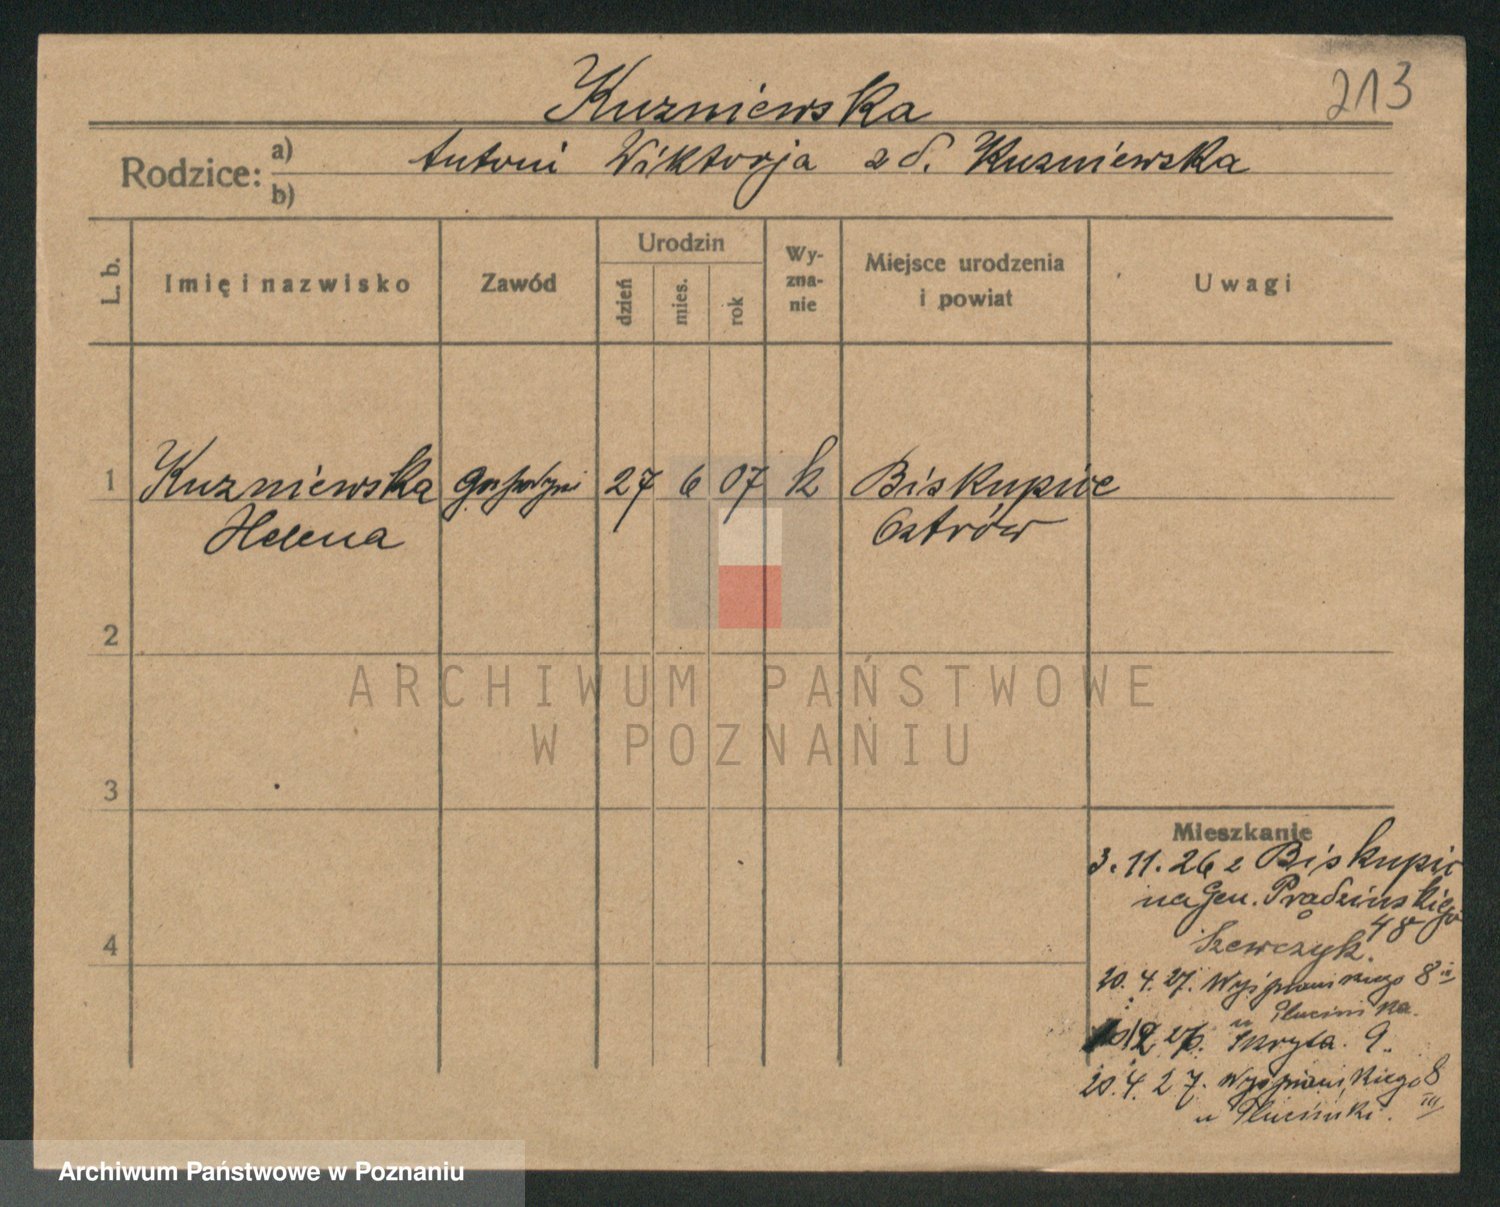 213
Kuzniewska
Rodzice: a) Antoni Wiktorja z d. Kuzniewska
b)
L. b.
Imię i nazwisko
Zawód
Urodzin
dzień
mies.
rok
Wy-
zna-
nie
Miejsce urodzenia
i powiat
Uwagi
1 Kuzniewska gospodyni 27 6 07 k Biskupice
Helena Ostrów
2
3
4
Mieszkanie
3. 11. 26 z Biskupic
na Gen. Pradzinskiego
48
Szewczyk.
20. 4. 27. Wyspianskiego 8
u
12 26. Skryta. 9.
20. 4. 27. Wyspianskiego 8
III
u
ARCHIWUM PAŃSTWOWE
W POZNANIU
Archiwum Państwowe w Poznaniu